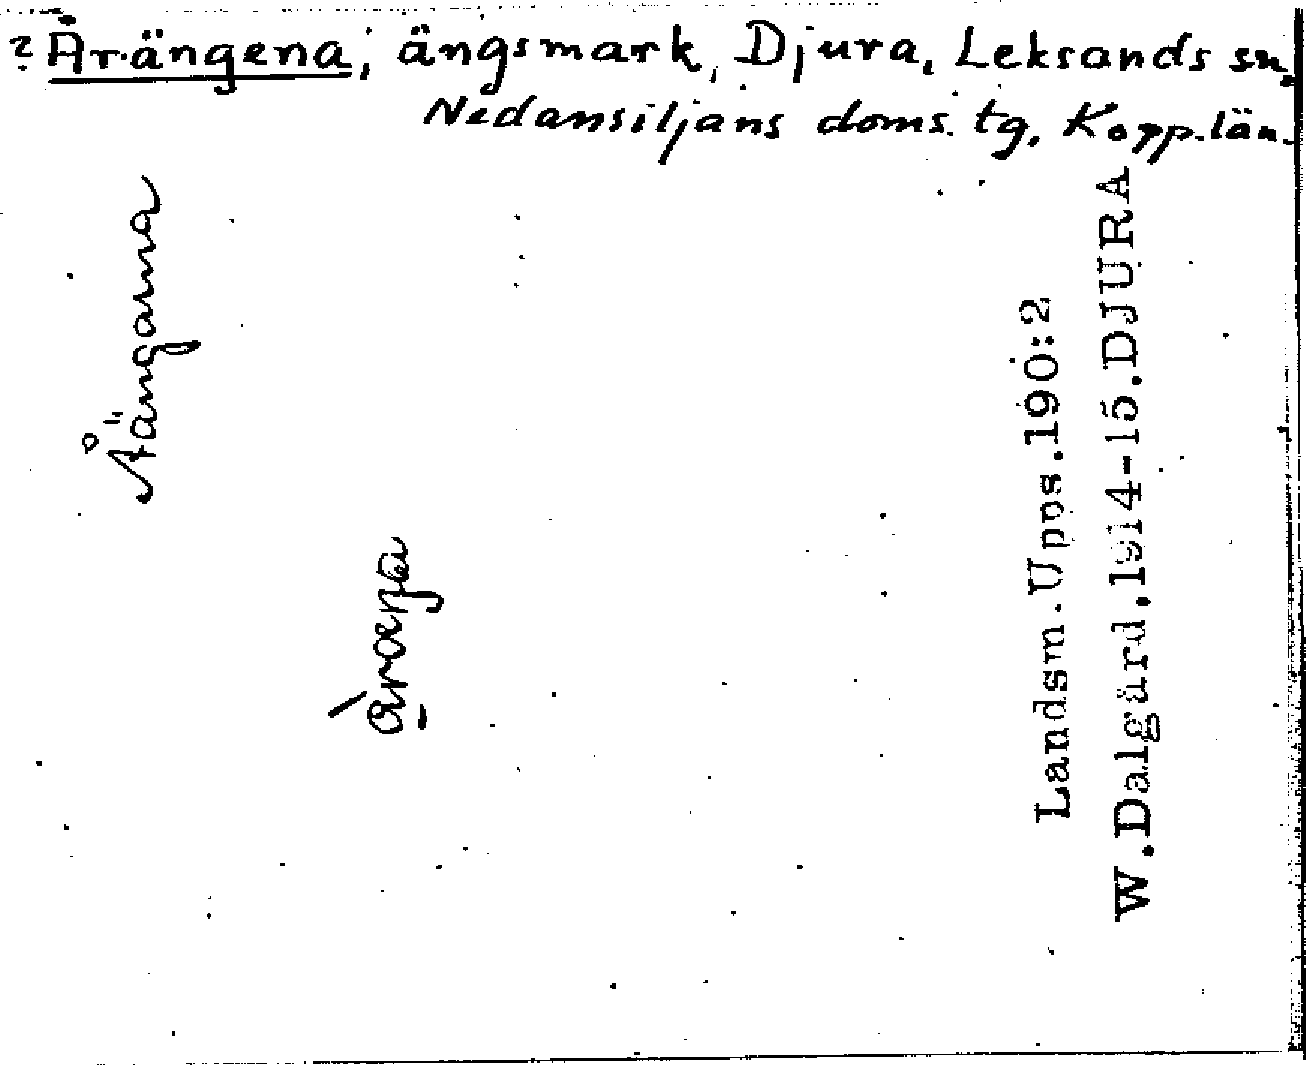 ? Årängena, ängsmark, Djura, Leksands sn,
Nedansiljans doms. tg, Kopp. län.
Åängarna
Landsm. Upps. 190:2
W. Dalgård, 1914-15. DJURA